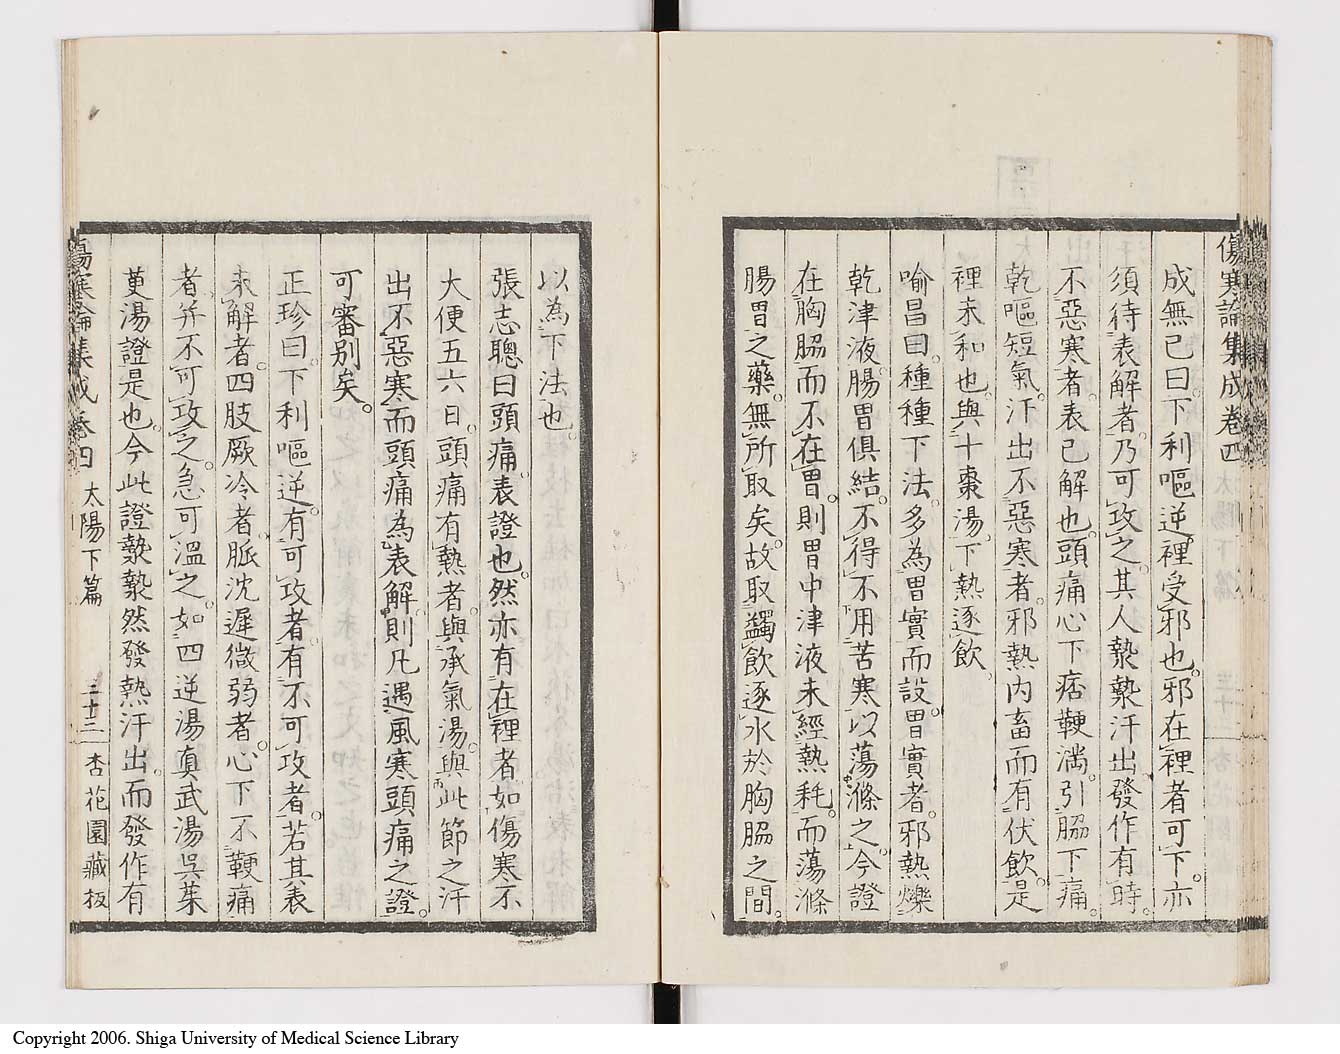 傷寒論集成卷四
成無己曰。下利嘔逆。裡受邪也。邪在裡者可下。亦
須待表解者。乃可攻之。其人漐漐汗出。發作有時。
不惡寒者。表已解也。頭痛心下痞鞕滿。引脇下痛。
乾嘔短氣。汗出不惡寒者。邪熱內畜而有伏飲。是
裡未和也。與十棗湯。下熱逐飲。
喻昌曰。種種下法。多為胃實而設。胃實者。邪熱爍
乾津液。腸胃俱結。不得不用苦寒以蕩滌之。今證
在胸脇而不在胃。則胃中津液未經熱耗。而蕩滌
腸胃之藥。無所取矣。故取蠲飲逐水於胸脇之間。
以為下法也。
張志聰曰頭痛。表證也。然亦有在裡者。如傷寒不
大便五六日。頭痛有熱者。與承氣湯。與此節之汗
出不惡寒而頭痛為表解。則凡遇風寒頭痛之證。
可審別矣。
正珍曰。下利嘔逆。有可攻者。有不可攻者。若其表
未解者。四肢厥冷者。脈沈遲微弱者。心下不鞕痛
者。并不可攻之。急可溫之。如四逆湯真武湯吳茱
萸湯證是也。今此證漐漐然發熱汗出。而發作有
傷寒論集成卷四 太陽下篇 三十三 杏花園藏板
Copyright 2006. Shiga University of Medical Science Library